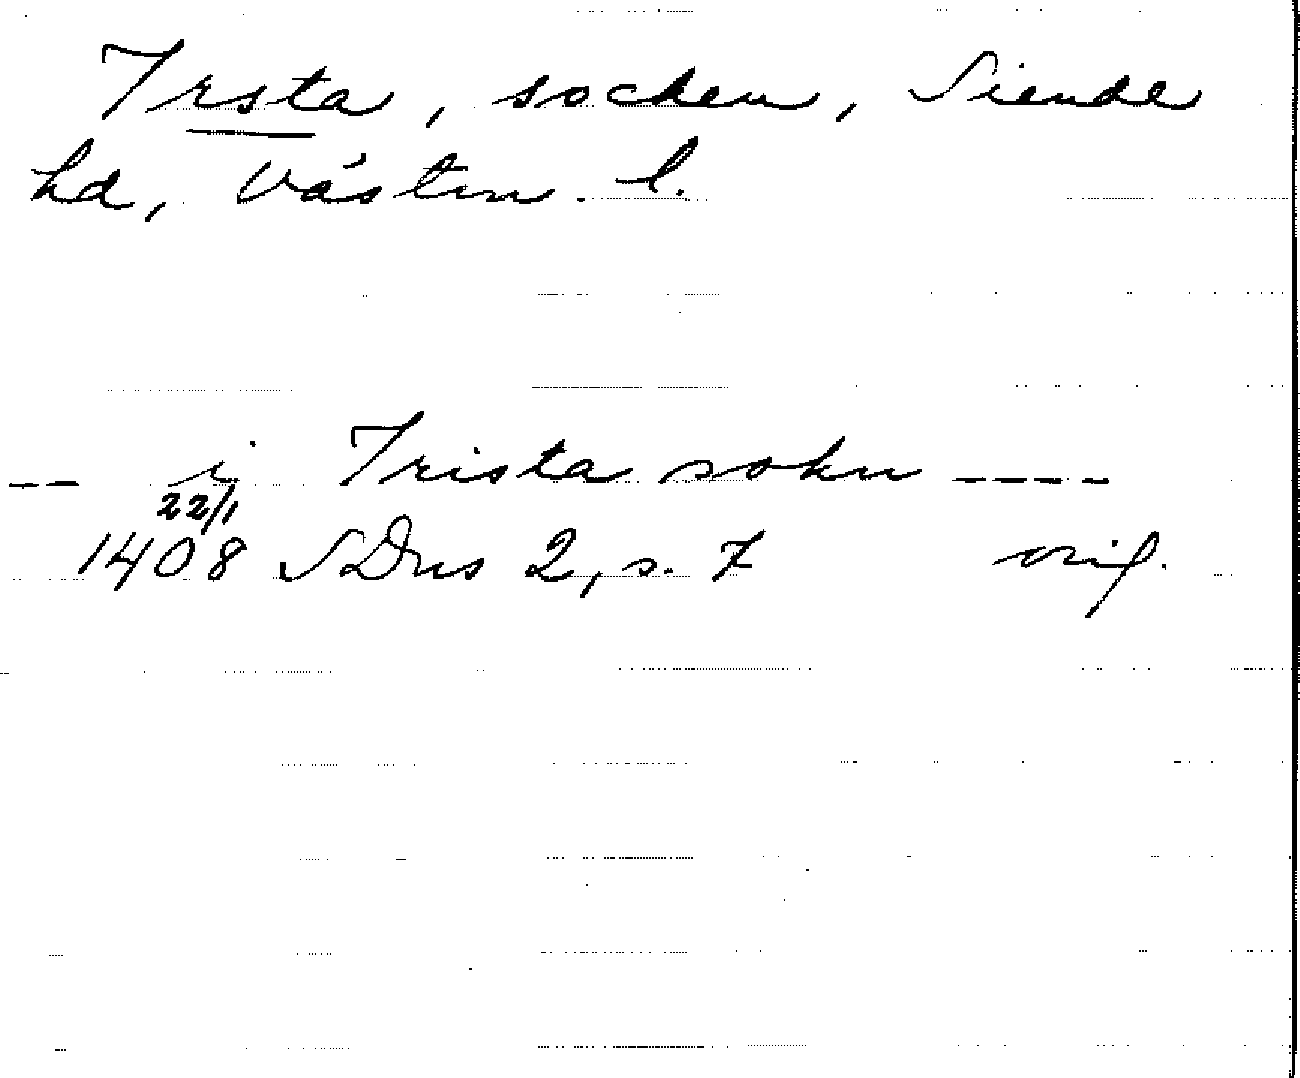 Irsta, socken, Siende
hd, Västm. l.
-- i Irista sokn ----
22/1
1408 SDns 2, s. 7 orig.